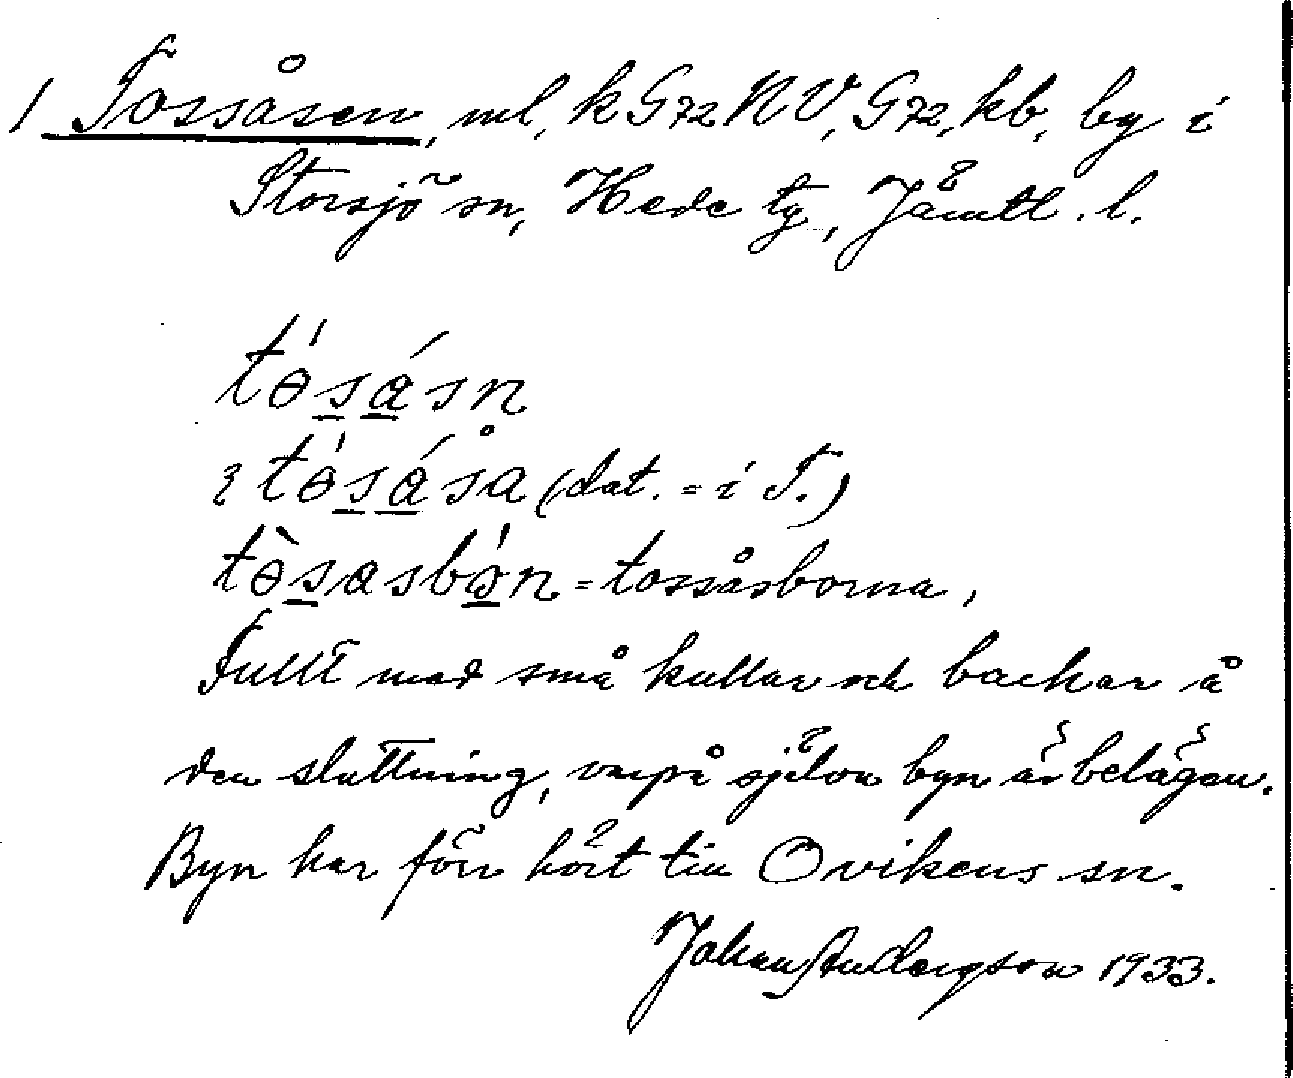 1 Tossåsen, ml, k G72 NV, G72, kb, by i
Storsjö sn, Hede tg, Jämtl. l.
tòsásn
tòsása (dat. = i T.)
tòsasbón = tossåsborna,
Fullt med små kullar och backar å
den sluttning, varpå själva byn är belägen.
Byn har förr hört till Ovikens sn.
Johan Andersson 1933.